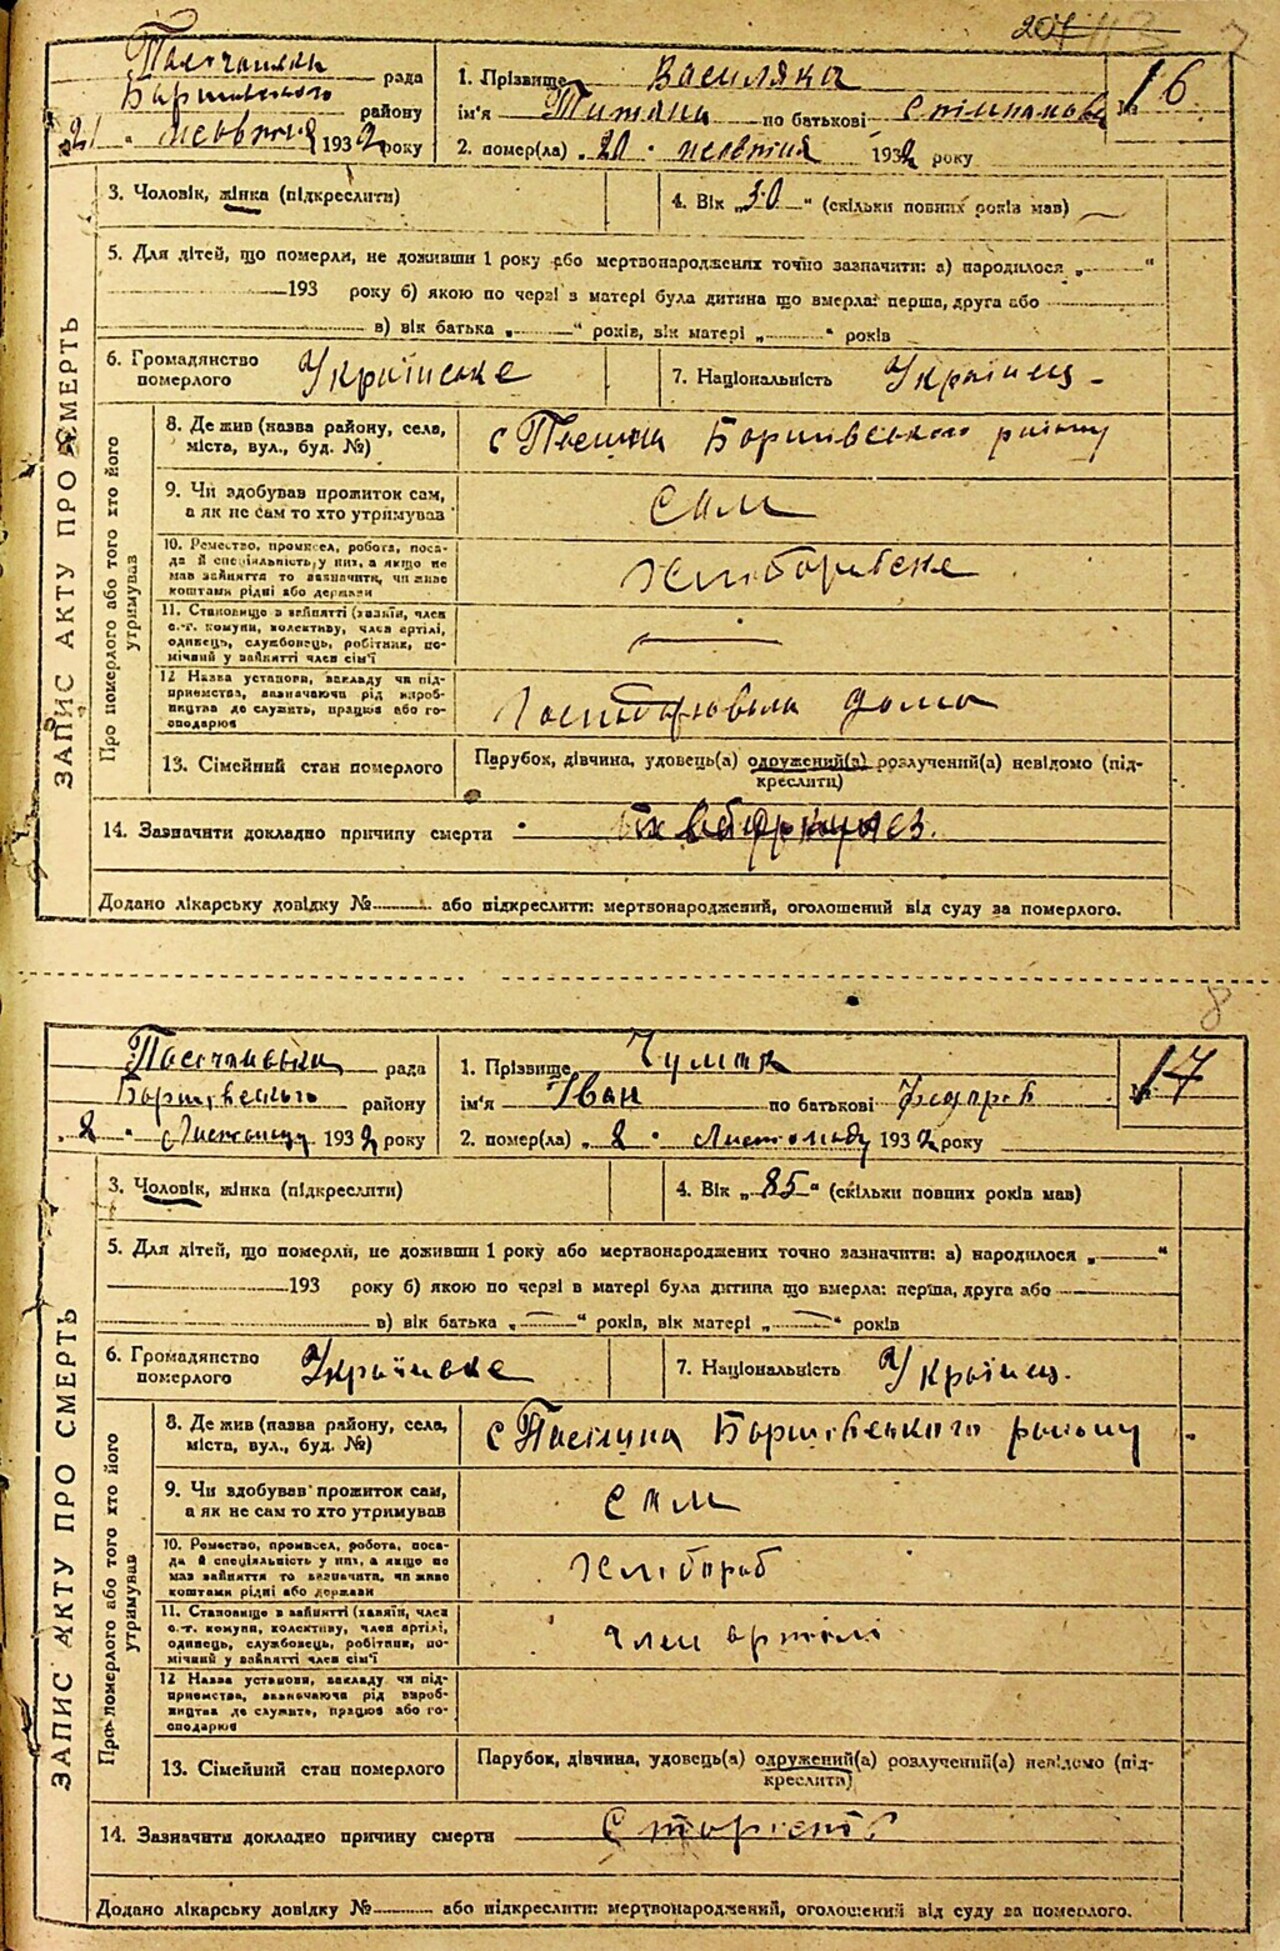 Пісчанська рада
Боршівського району
„21“ жовтня 1932 року
1. Прізвище Василяка
16
ім'я Титяна по батькові Степанова
2. помер(ла) „20“ жовтня 1932 року
ЗАПИС АКТУ ПРО СМЕРТЬ
3. Чоловік, жінка (підкреслити)
4. Вік „30“ (скільки повних років мав)
5. Для дітей, що померли, не доживши 1 року або мертвонароджених точно зазначити: а) народилося „ “
193 року б) якою по черзі з матері була дитина що вмерла: перша, друга або
в) вік батька „ “ років, вік матері „ “ років
6. Громадянство померлого Украінське
7. Національність Украінец
Про померлого або того хто його утримував
8. Де жив (назва району, села,
міста, вул., буд. №)
с Пісчана Боршівського району
9. Чи здобував прожиток сам,
а як не сам то хто утримував
сам
10. Ремество, промисел, робота, поса-
да й спеціяльність у них, а якщо не
мав зайняття то зазначити, чи живе
коштами рідні або держави
Хліборобське
11. Становище в зайнятті (хазяїн, член
с.-г. комуни, колективу, член артілі,
одинець, службовець, робітник, по-
мічний у зайнятті член сім'ї
12 Назва установи, закладу чи під-
приємства, зазначаючи рід вироб-
ництва де служить, працює або го-
сподарює
Господарювала дома
13. Сімейний стан померлого
Парубок, дівчина, удовець(а) одружений(а) розлучений(а) невідомо (під-
креслити)
14. Зазначити докладно причину смерти
Додано лікарську довідку № або підкреслити: мертвонароджений, оголошений від суду за померлого.
8
Пісчанська рада
Боршівського району
„8“ Листопаду 1932 року
1. Прізвище Чумак
17
ім'я Іван по батькові Федоров
2. помер(ла) „8“ Листопаду 1932 року
ЗАПИС АКТУ ПРО СМЕРТЬ
3. Чоловік, жінка (підкреслити)
4. Вік „85“ (скільки повних років мав)
5. Для дітей, що померли, не доживши 1 року або мертвонароджених точно зазначити: а) народилося „ “
193 року б) якою по черзі в матері була дитина що вмерла: перша, друга або
в) вік батька „ “ років, вік матері „ “ років
6. Громадянство померлого Украінське
7. Національність Украінец.
Про померлого або того хто його утримував
8. Де жив (назва району, села,
міста, вул., буд. №)
с Пісчана Боршівського району
9. Чи здобував прожиток сам,
а як не сам то хто утримував
сам
10. Ремество, промисел, робота, поса-
да й спеціяльність у них, а якщо не
мав зайняття то зазначити, чи живе
коштами рідні або держави
Хлібороб
11. Становище в зайнятті (хазяїн, член
с.-г. комуни, колективу, член артілі,
одинець, службовець, робітник, по-
мічний у зайнятті член сім'ї
член артілі
12 Назва установи, закладу чи під-
приємства, зазначаючи рід вироб-
ництва де служить, працює або го-
сподарює
13. Сімейний стан померлого
Парубок, дівчина, удовець(а) одружений(а) розлучений(а) невідомо (під-
креслити)
14. Зазначити докладно причину смерти Старість
Додано лікарську довідку № або підкреслити: мертвонароджений, оголошений від суду за померлого.